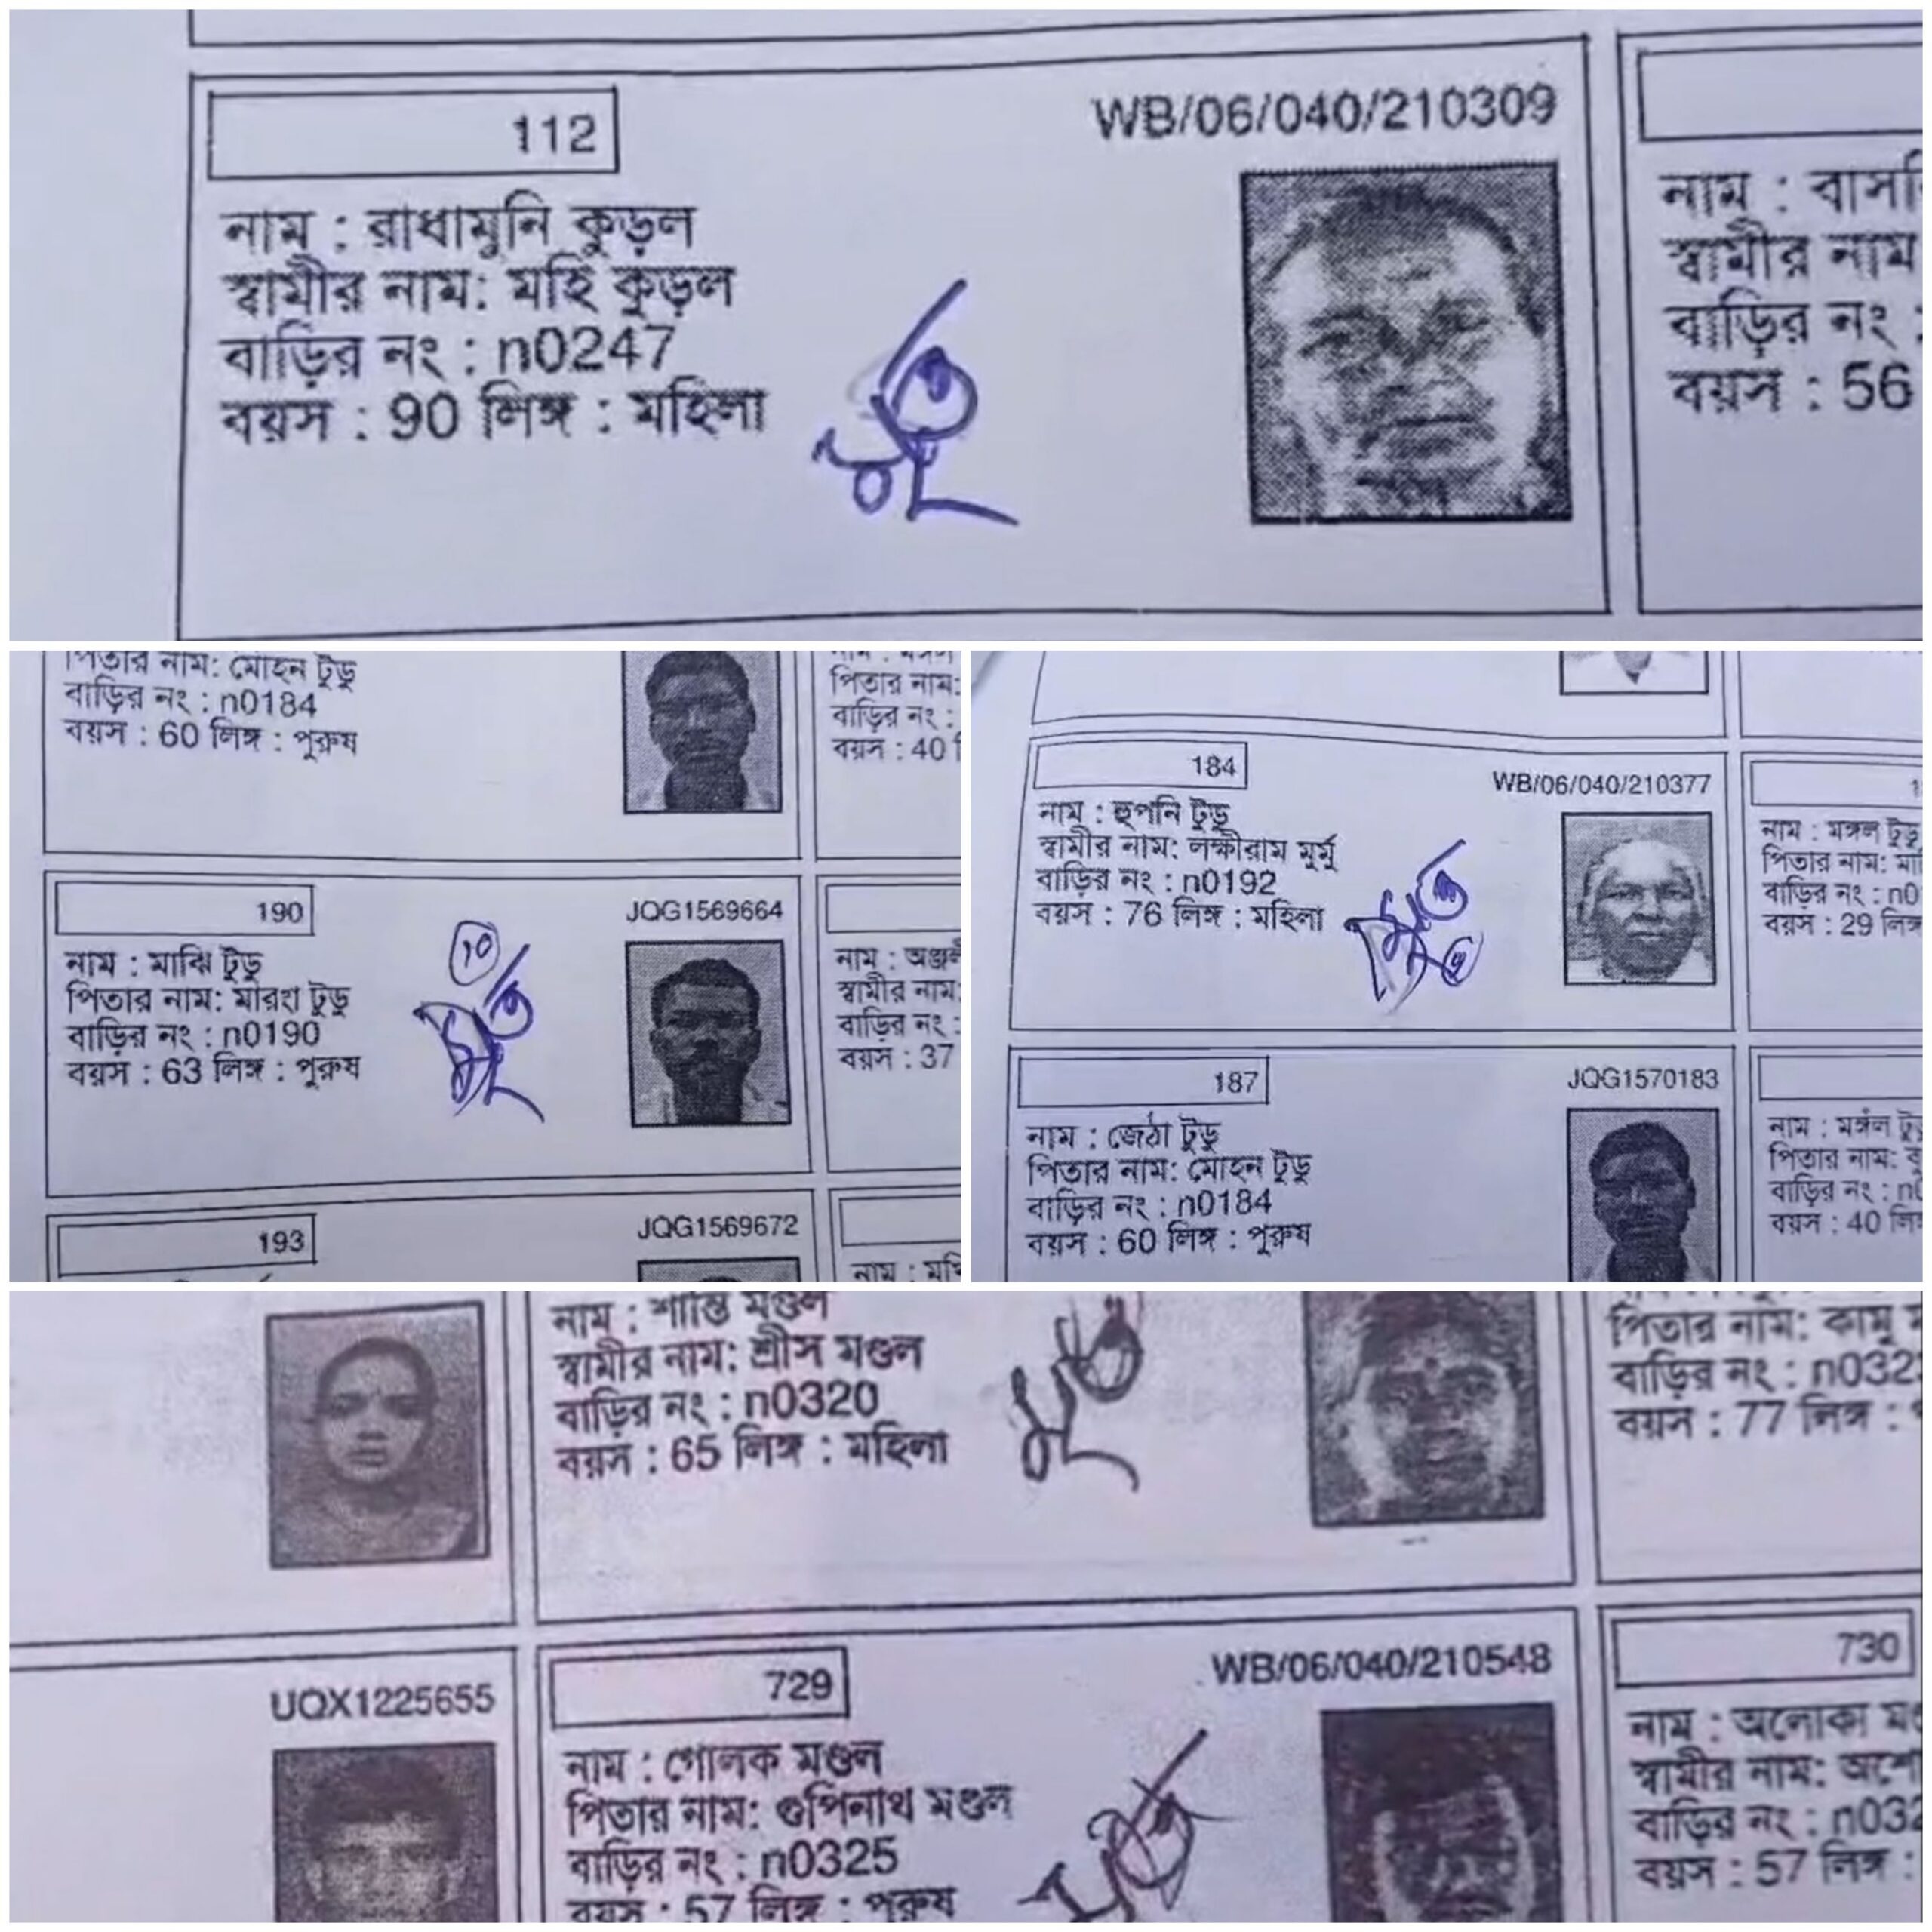 112
WB/06/040/210309
নাম : রাধামুনি কুড়ল
স্বামীর নাম: মহি কুড়ল
বাড়ির নং : n0247
বয়স : 90 লিঙ্গ : মহিলা
মৃত
নাম :
স্বামীর নাম
বাড়ির নং :
বয়স : 56
পিতার নাম: মোহন টুডু
বাড়ির নং : n0184
বয়স : 60 লিঙ্গ : পুরুষ
পিতার নাম:
বাড়ির নং :
বয়স : 40
190
JQG1569664
নাম : মাঝি টুডু
পিতার নাম: মারংা টুডু
বাড়ির নং : n0190
বয়স : 63 লিঙ্গ : পুরুষ
10
মৃত
নাম :
স্বামীর নাম:
বাড়ির নং :
বয়স : 37
193
JQG1569672
নাম :
184
WB/06/040/210377
নাম : হুপনি টুডু
স্বামীর নাম: লক্ষীরাম মুর্মু
বাড়ির নং : n0192
বয়স : 76 লিঙ্গ : মহিলা
মৃত
নাম : মঙ্গল টুডু
পিতার নাম:
বাড়ির নং :
বয়স : 29 লিঙ্গ
187
JQG1570183
নাম : জেঠা টুডু
পিতার নাম: মোহন টুডু
বাড়ির নং : n0184
বয়স : 60 লিঙ্গ : পুরুষ
নাম : মঙ্গল
পিতার নাম:
বাড়ির নং :
বয়স : 40
নাম : শান্তি মণ্ডল
স্বামীর নাম: শ্রীস মণ্ডল
বাড়ির নং : n0320
বয়স : 65 লিঙ্গ : মহিলা
মৃত
পিতার নাম: কামু
বাড়ির নং :
বয়স : 77 লিঙ্গ :
UQX1225655
729
WB/06/040/210548
নাম : গোলক মণ্ডল
পিতার নাম: গুপিনাথ মণ্ডল
বাড়ির নং : n0325
বয়স : 57 লিঙ্গ : পুরুষ
মৃত
730
নাম : অলোকা
স্বামীর নাম:
বাড়ির নং :
বয়স : 57 লিঙ্গ :